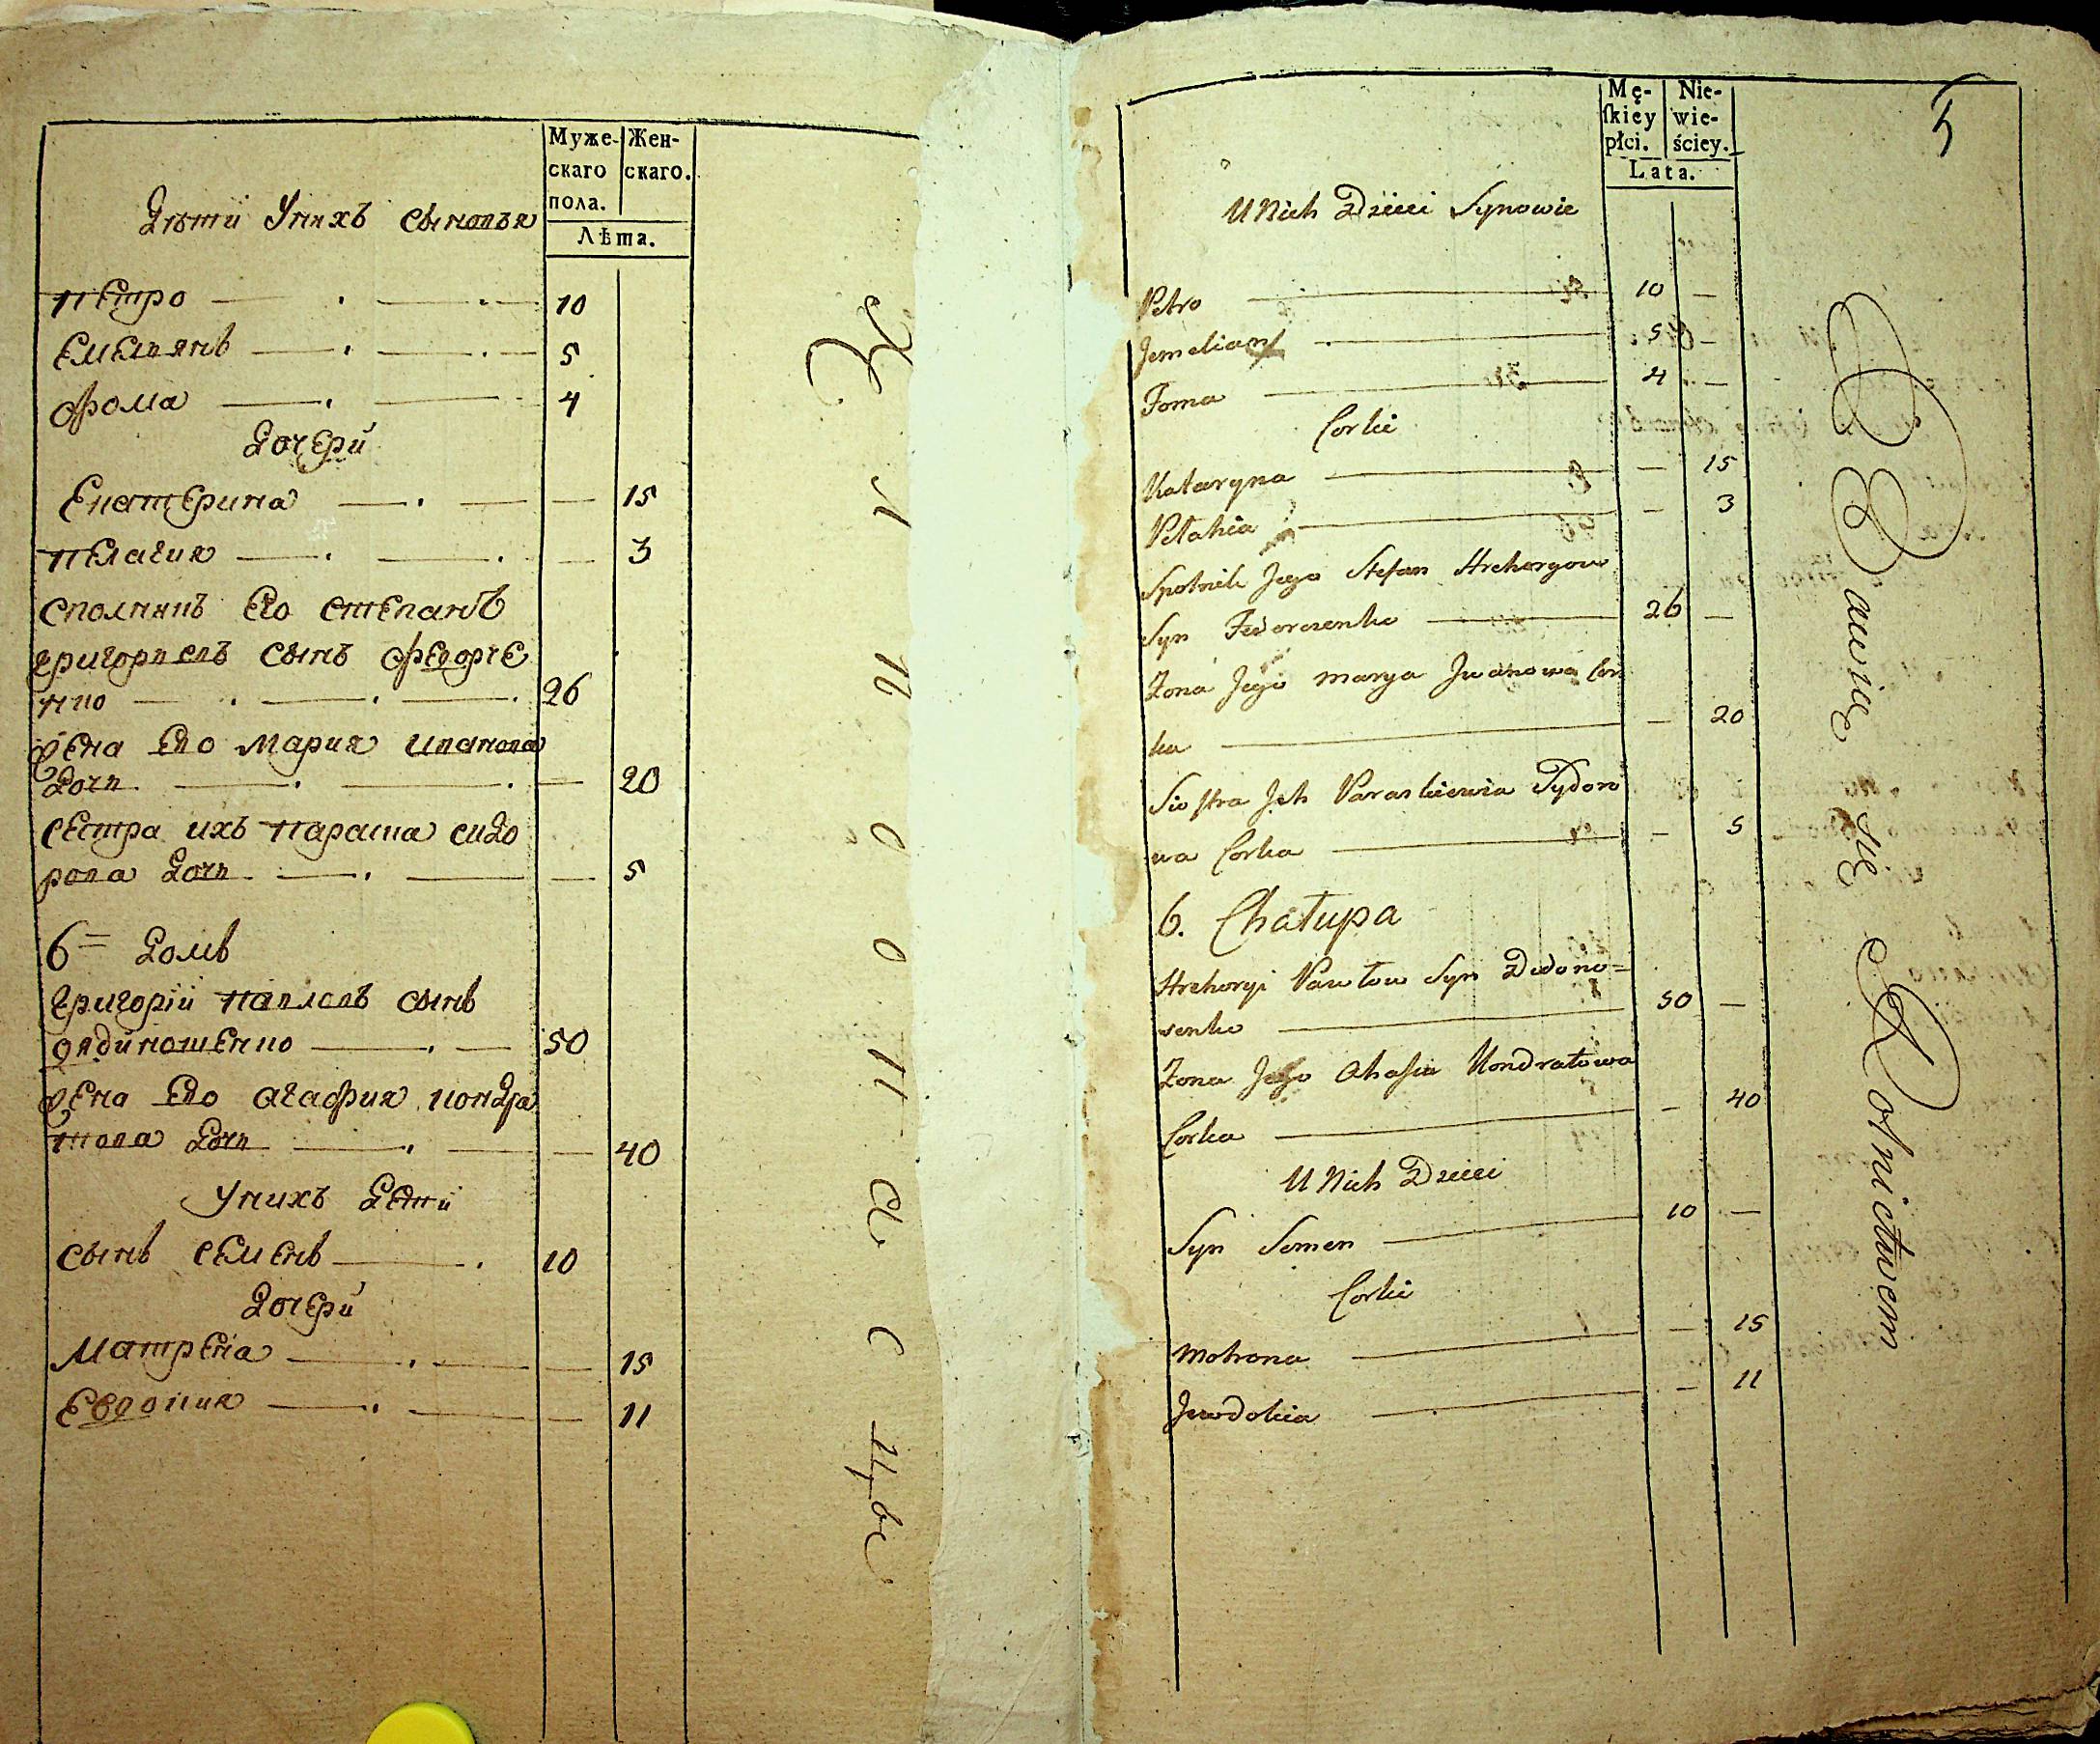 Муже-
скаго
пола.
Жен-
скаго.
Лѣта.
Дѣти Унихъ сыновья
Петро 10
Емелянъ 5
Фома 4
Дочери
Екатерина — 15
Пелагия — 3
сполникъ Его степанъ
григориевъ сынъ Федорче
нко 26
жена Его мария иванова
Дочь — 20
сестра ихъ параска сидо
рова Дочь — 5
6 Домъ
григорїй павловъ сынъ
жена Его агафия кондра
това Дочь — 40
Унихъ Дети
сынъ семенъ 10
Дочери
матрена — 15
Евдокия — 11
Mę-
ſkiey
płci.
Nie-
wie-
ściey.
Lata.
5
U Nich Dzieci Synowie
Petro 10 —
Jemelian 5 —
Foma 4 —
Corki
Kataryna — 15
Pelahia — 3
Spolnik Jego Stefan Hrehoryow
Syn Fedorczenko 26 —
Zona Jego Marya Jwanowa Cor
ka — 20
Siostra Jch Paraskiewia Sydoro
wa Corka — 5
6. Chałupa
Hrehoryi Pawłow Syn
senko 50 —
Zona Jego Ahafia Kondratowa
Corka — 40
U Nich Dzieci
Syn Semen 10 —
Corki
Motrona — 15
Jewdokia — 11
Bawię się Rolnictwem